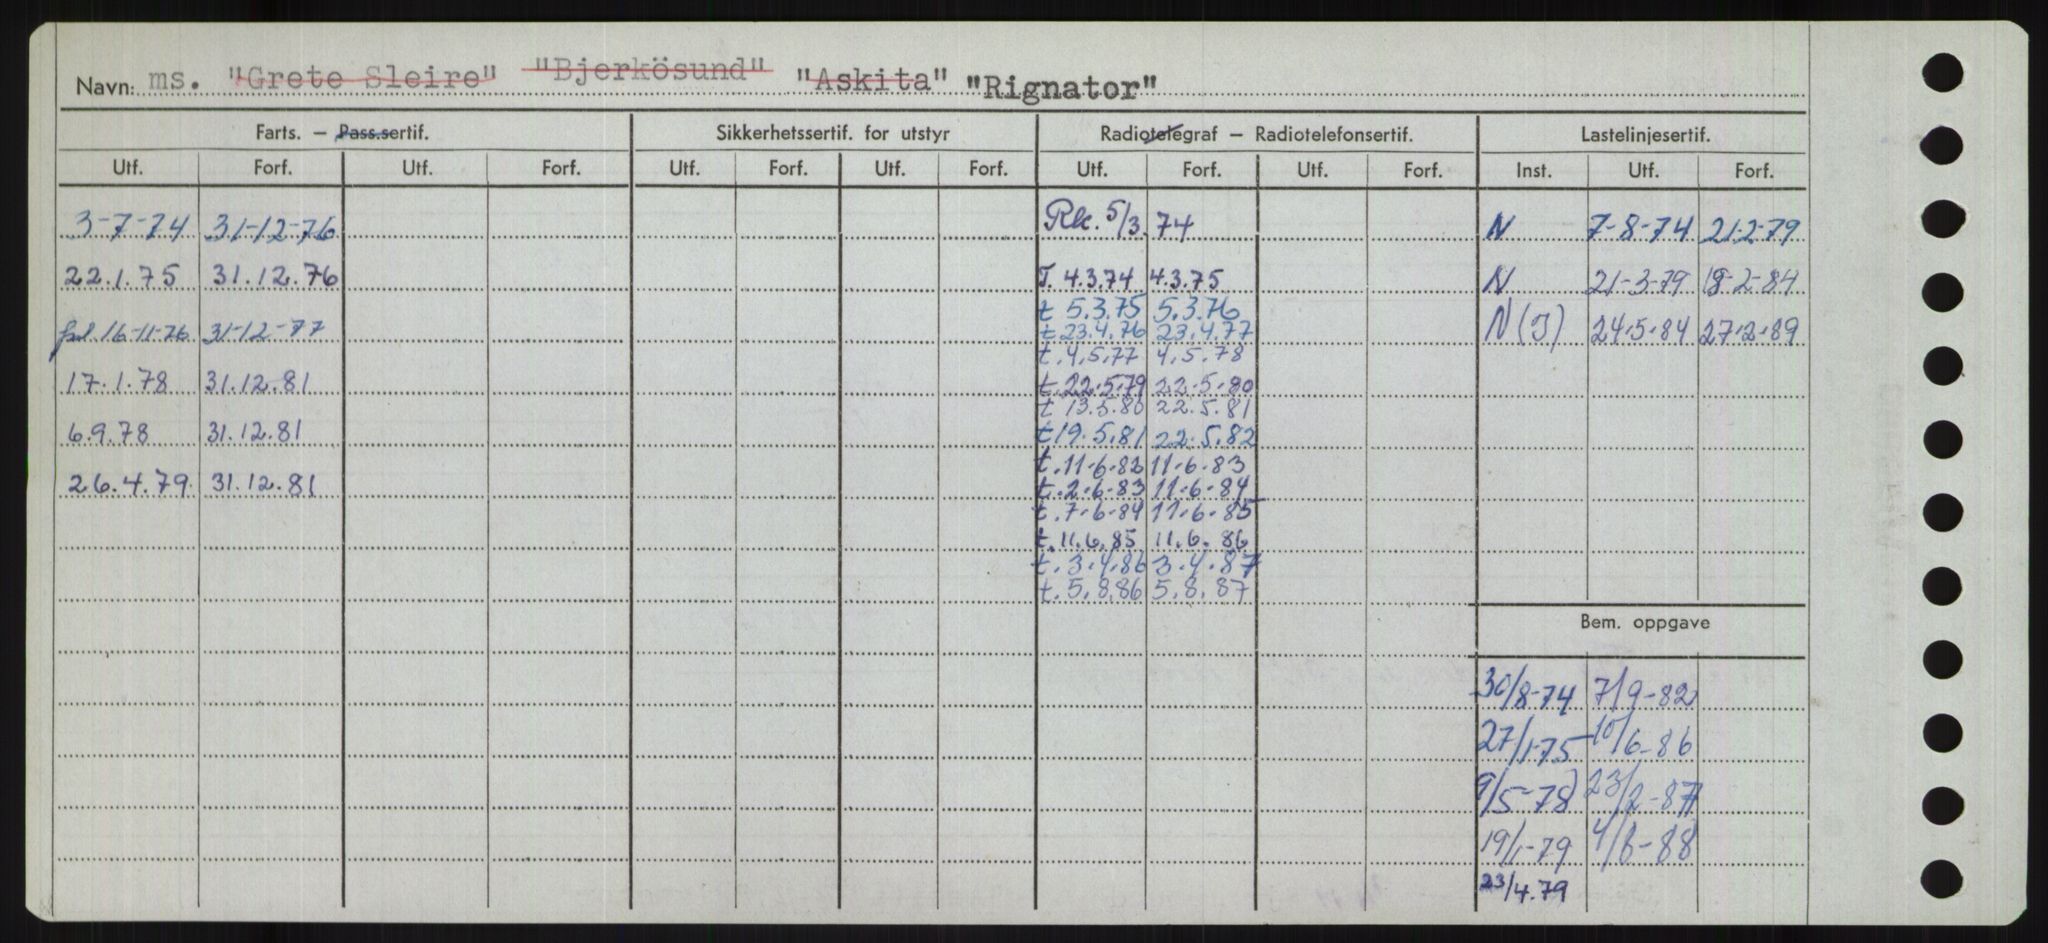 Navn: ms. "Grete Sleire" "Bjerkösund" "Askita" "Rignator"
Farts. — Pass.sertif. Sikkerhetssertif. for utstyr Radiotelegraf — Radiotelefonsertif. Lastelinjesertif.
Utf. Forf. Utf. Forf. Utf. Forf. Utf. Forf. Utf. Forf. Utf. Forf. Inst. Utf. Forf.
3-7-74 31-12-76 Rk. 5/3.74 N 7-8-74 21-2-79
22.1.75 31.12.76 T. 4.3.74 4.3.75 N 21-3-79 -2-84
t 5.3.75 5.3.76
16-11-76 31-12-77 t 23.4.76 23.4.77 N (I) 24.5.84 27.2.89
t. 4.5.77 4.5.78
17.1.78 31.12.81 t. 22.5.79 22.5.80
t 13.5.80 22.5.81
6.9.78 31.12.81 t 19.5.81 22.5.82
t. 11.6.82 11.6.83
26.4.79 31.12.81 t. 2.6.83 11.6.84
t. 7.6.84 11.6.85
t. 11.6.85 11.6.86
t. 3.4.86 3.4.87
t. 5.8.86 5.8.87
Bem. oppgave
30/8-74 7/9-82
27/1-75 10/6-86
9/5-78 23/2-87
19/1-79 4/6-88
23/4.79